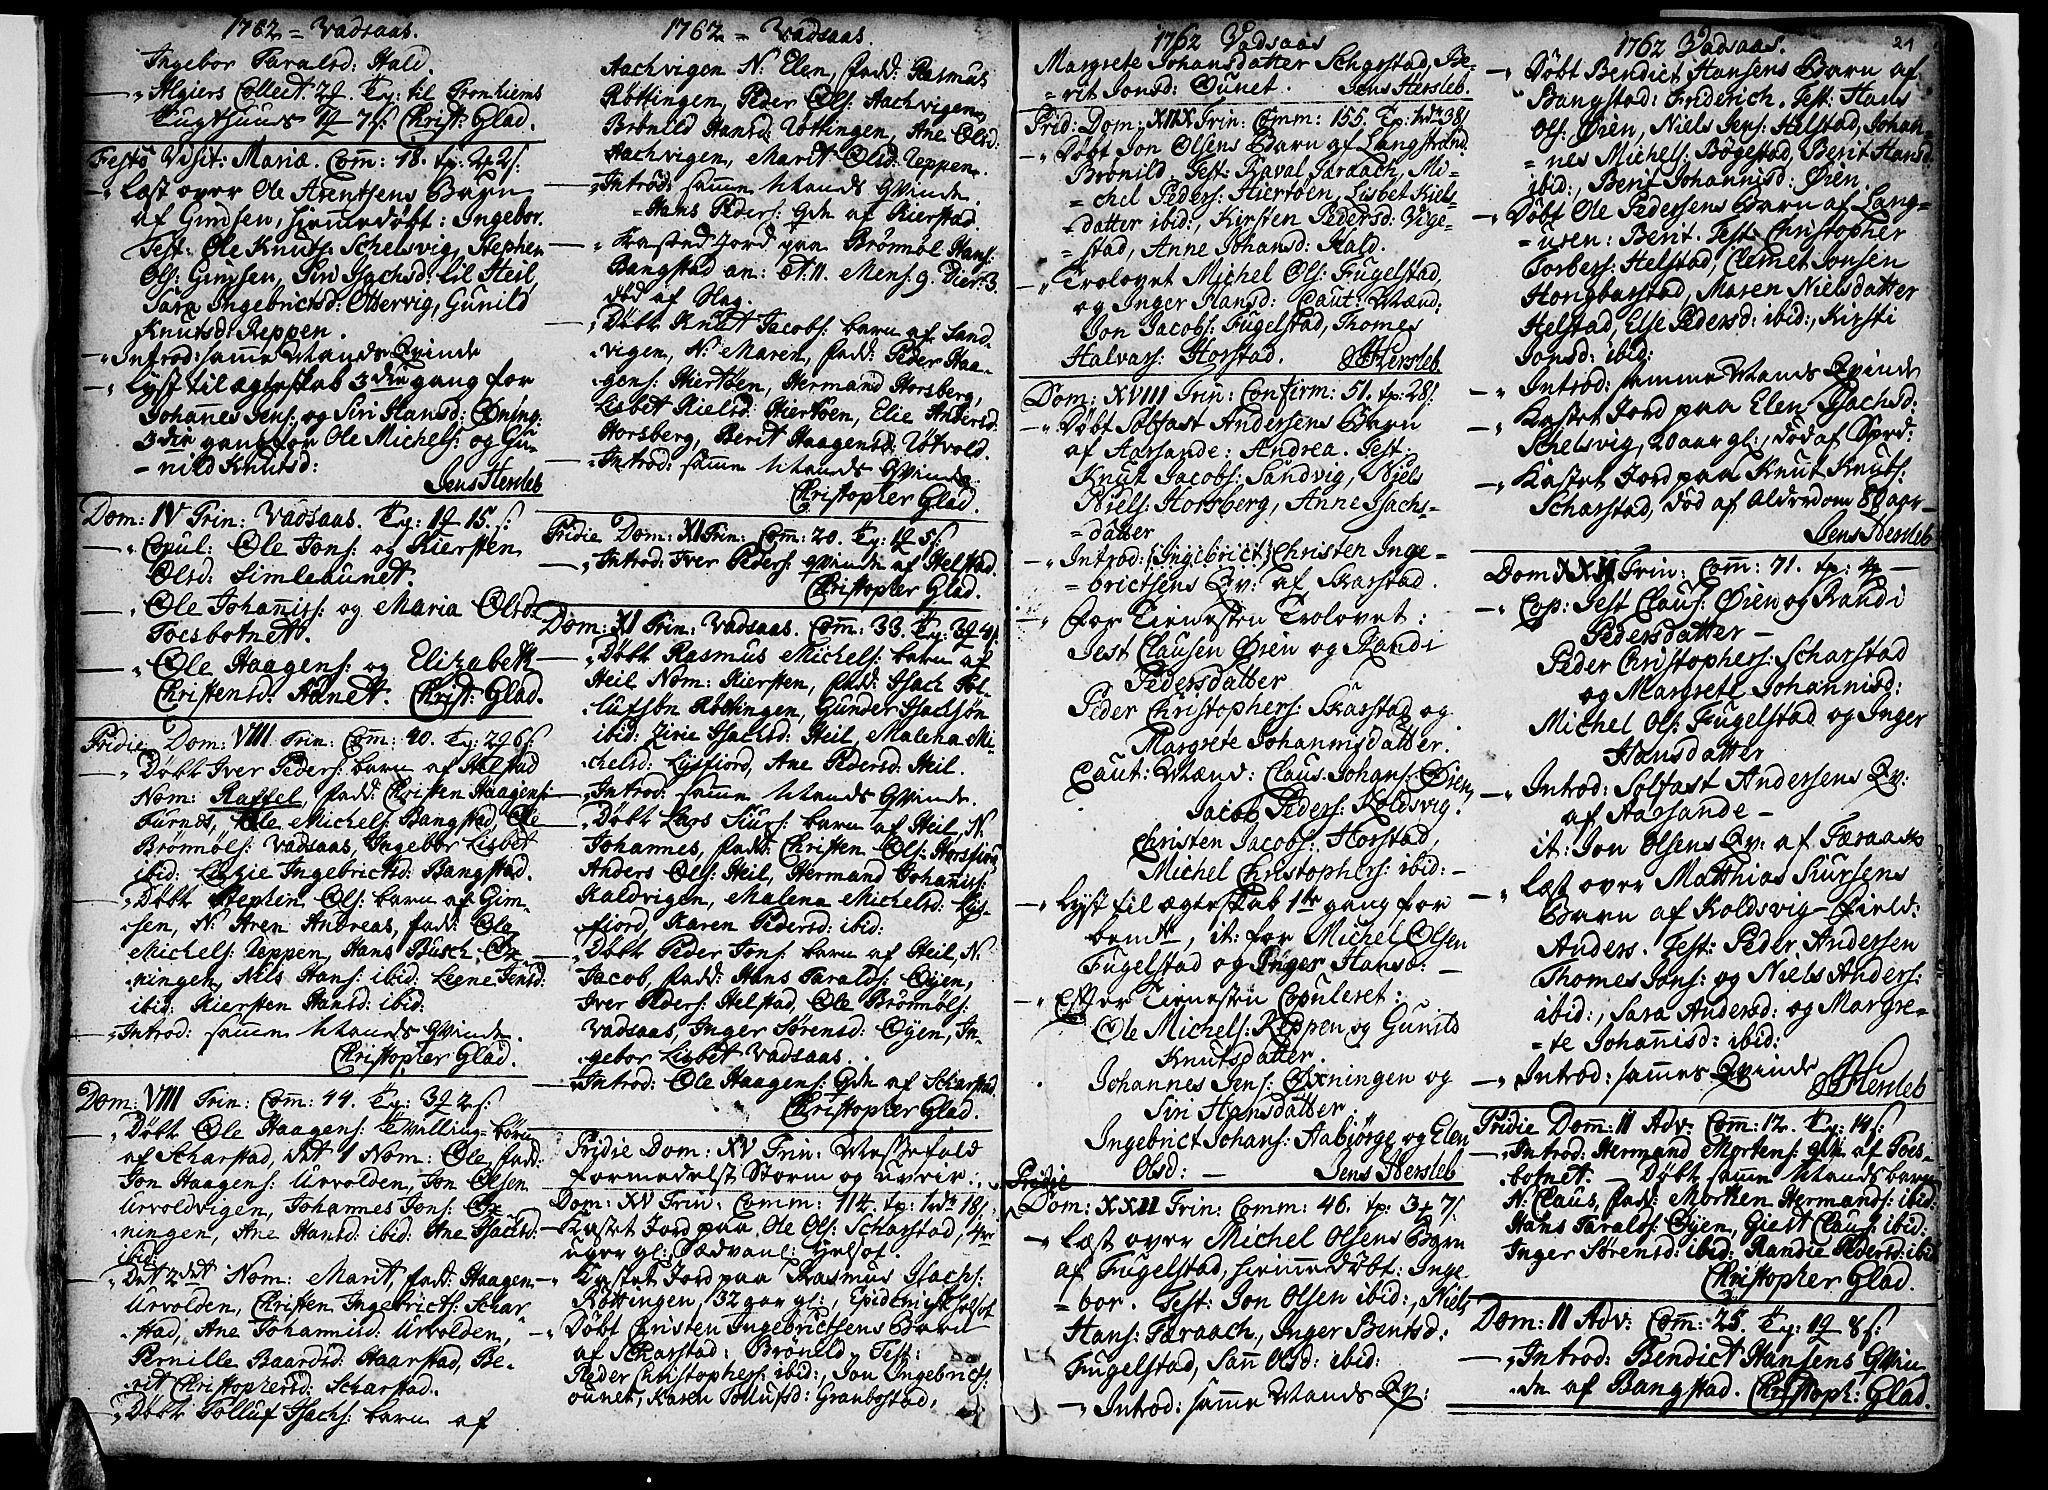 1762 = Vadsaas.
Ingebor Taralsd: Hald
Algiers Collect
Tugthuus Christ: Glad.
Festo Visit: Mariæ. Com̄: 18.
Læst over Ole Arentsens Barn
af Gimsen, hiemmedøbt: Ingebor.
Test: Ole Knuts: Schelsvig, Stephen
Ols: Gimsen, Siri Isachsd: lil Heil,
Sara Ingebrictsd: Ottervig, Gunild
Knutsd: Reppen.
Introd: samme Mands Qvinde
Lyst til ægteskab 3die gang for
Johannes Jens: og Siri Hansd: Øxning:
3die gang for Ole Michels: og Gu-
-nild Knutsd:
Jens Hersleb
Dom: IV Trin: Vadsaas.
Copul: Ole Jons: og Kiersten
Olsd: Simleaunet.
Ole Johañis: og Maria Olsd:
Toesbotnet.
Ole Haagens: og Elizabeth
Christensd: Aanet. Christ: Glad.
Pridie Dom: VIII Trin: Com̄: 40.
Døbt Iver Peders: barn af Helstad
Nom: Raffel, fadd: Christen Haagens:
Furnes, Ole Michels: Bangstad, Ole
Brønnøls: Vadsaas, Ingebor Lisbet
ibid: Ingebrictsd: Bangstad.
Døbt Stephen Ols: barn af Gim-
sen, N: Aren Andreas, fadd: Ole
Michels: Reppen, Hans Busch Øx-
ningen, Nils Hans: ibid: Leene Jensd:
ibid: Kiersten Hansd: ibid:
Introd: samme Mands Qvinde.
Christopher Glad.
Dom: VIII Trin: Com̄: 44.
Døbt Ole Haagens: Tvilling-børn
af Scharstad, det 1 Nom: Ole, fadd:
Jon Haagens: Urvolden, Jon Olsen
Urvoldvigen, Johannes Jons: Øx-
ningen, Ane Hansd: ibid: Ane Isachsd:
ibid:
Det 2det Nom: Marit, fadd: Haagen
Urvolden, Christen Ingebricts: Schar-
stad, Ane Johannisd: Urvolden,
Pernille Baardsd: Haarstad, Be-
rit Christophersd: Scharstad.
Døbt Tolluf Isachs: barn af
1762 = Vadsaas.
Aachvigen N: Elen, fadd: Rasmus
Røttingen, Peder Ols: Aachvigen
Brønild Hansd: Røttingen, Ane Olsd:
Aachvigen, Marit Olsd: Reppen.
Introd: samme Mands Qvinde.
Hans Peders: Qde af Kierstad.
Kasted Jord paa Brønnøl Hans:
Bangstad an: æt. 11. Mens: 9. Dier: 3.
død af Slag.
Døbt Knut Jacobs: barn af Sand-
vigen, N: Maren, fadd: Peder Haa-
gens: Hiertøen, Hermand Horsberg,
Lisbet Nielsd: Hiertøen, Elie Andersd:
Horsberg, Berit Haagensd: Utvold.
Introd: samme Mands Qvinde.
Christopher Glad.
Pridie Dom: XI Trin: Com̄: 20.
Introd: Iver Peders: Qvinde af Helstad.
Christopher Glad.
Dom: XI Trin: Vadsaas. Com̄: 33.
Døbt Rasmus Michels: barn af
Heil Nom: Kiersten, fadd: Isach Tol-
lufsøn Røttingen, Gunder Isachsøn
ibid: Zirie Isachsd: Heil, Malena Mi-
chelsd: Lysfiord, Ane Pedersd: Heil.
Introd: samme Mands Qvinde.
Døbt Lars Siurs: barn af Heil, N:
Johannes, fadd: Christen Ols: Horsfiord
Anders Ols: Heil, Hermand Johañis:
Kaldvigen, Malena Michelsd: Lys-
fiord, Karen Pedersd: ibid:
Døbt Peder Jons: barn af Heil, N:
Jacob, fadd: Hans Taralds: Øyen,
Iver Peders: Helstad, Ole Brønnøls:
Vadsaas Inger Sørensd: Øyen, In-
gebor Lisbet Vadsaas.
Introd: Ole Haagens: Qde af Scharstad.
Christopher Glad.
Pridie Dom: XV Trin: Messefald
formedelst Storm og uveir.
Dom: XV Trin: Comm: 114.
Kastet Jord paa Ole Ols: Scharstad, 4re
uger gl:
Kastet Jord paa Rasmus Isachs:
Røttingen, 32 aar gl:, Epidemisk
Døbt Christen Ingebrictsens Barn
af Scharstad: Brønild. Test:
Peder Christophers: ibid:, Jon Ingebricts:
ounet, Karen Tollufsd: Granbostad,
1762 Vadsaas
Margrete Johansdatter Scharstad, Be-
-rit Jonsd: Ounet. Jens Hersleb.
Prid: Dom: XIIX Trin: Comm: 155.
Døbt Jon Olsens Barn af Langstrand.
Brønild. Test: Mi-
-chel Peders: Hiertøen, Lisbet Niels-
datter ibid:, Kirsten Pedersd: Vige-
-stad, Anne Johansd: Hald.
Trolovet Michel Ols: Fugelstad
og Inger Hansd: Caut: Mænd:
Jon Jacobs: Fugelstad, Thomes
Halvars: Horstad. JHersleb
Dom: XVIII Trin: Confirm: 51. tp: 28ſ:
Døbt Solfast Andersens Barn
af Aarsande: Andrea. Test:
Knut Jacobs: Sandvig, Niels
Niels: Horsberg, Anne Isachs-
=datter
Introd: (Ingebrict) Christen Inge-
-brictsens Qv: af Skarstad.
før Tienesten Trolovet:
Jest Clausen Øien og Randi
Pedersdatter
Peder Christophers: Skarstad og
Margrete Johannisdatter.
Caut: Mænd: Claus Johans: Øien,
Jacob Peders: Koldsvig.
Christen Jacobs: Horstad,
Michel Christophers: ibid:
Lyst til ægteskab 1te gang for
bemte, it: for Michel Olsen
Fugelstad og Inger Hansd:
Efter Tienesten Copuleret:
Ole Michels: Reppen og Gunild
Knutsdatter.
Johannes Jens: Øxningen og
Siri Hansdatter.
Ingebrict Johans: Aabjørge og Elen
Olsd: Jens Hersleb
Pridie
Dom: XXII Trin: Comm: 46.
Læst over Michel Olsens Barn
af Fugelstad, hiemmedøbt: Inge-
-bor. Test: Jon Olsen ibid:, Niels
Hans: Færaach, Inger Bentsd:
Fugelstad, Olsd: ibid:
Introd: samme Mands Qv:
1762 Vadsaas. 24
Døbt Bendict Hansens Barn af
Bangstad: Friderich. Test: Hans
Ols: Øien, Niels Jens: Helstad, Johan-
=nes Michels: Bøgestad, Berit Hansd:
ibid:, Berit Johannisd: Øien.
Døbt Ole Pedersens Barn af Lang-
=usen: Berit. Test: Christopher
Torbers: Helstad, Clemet Jonsen
Hongbarstad, Maren Nielsdatter
Helstad, Else Pedersd: ibid:, Kirsti
Jonsd: ibid:
Introd: samme Mands Qvinde
Kastet Jord paa Elen Isachsd:
Schelsvig, 20 aar gl:, død af
Kastet Jord paa Knut Knuts:
Scharstad, død af Alderdom 80 aar
Jens Hersleb
Dom XXII Trin: Com̄: 71.
Cop: Jest Claus: Øien og Randi
Pedersdatter
Peder Christophers: Scharstad
og Margrete Johannisd:
Michel Ols: Fugelstad og Inger
Hansdatter
Introd: Solfast Andersens Qv:
af Aarsande
it: Jon Olsens Qv: af Færaach
Læst over Matthias Siursens
Barn af Koldsvig-Field:
Anders. Test: Peder Andersen
Thomes Jons: og Niels Anders:
ibid:, Sara Andersd: og Margre-
-te Johañisd: ibid:
Introd: sammes Qvinde
JHersleb
Pridie Dom: II Adv: Com̄: 12.
Introd: Hermand Mortens: Qde af Toes-
botnet. Døbt samme Mands barn
N: Claus, fadd: Morten Hermands: ibid:
Hans Taralds: Øyen, Giest Claus: ibid:
Inger Sørensd: ibid: Randie Pedersd: ibid:
Christopher Glad.
Dom: II Adv: Com̄: 25.
Introd: Bendict Hansens Qvin-
de af Bangstad. Christoph: Glad.